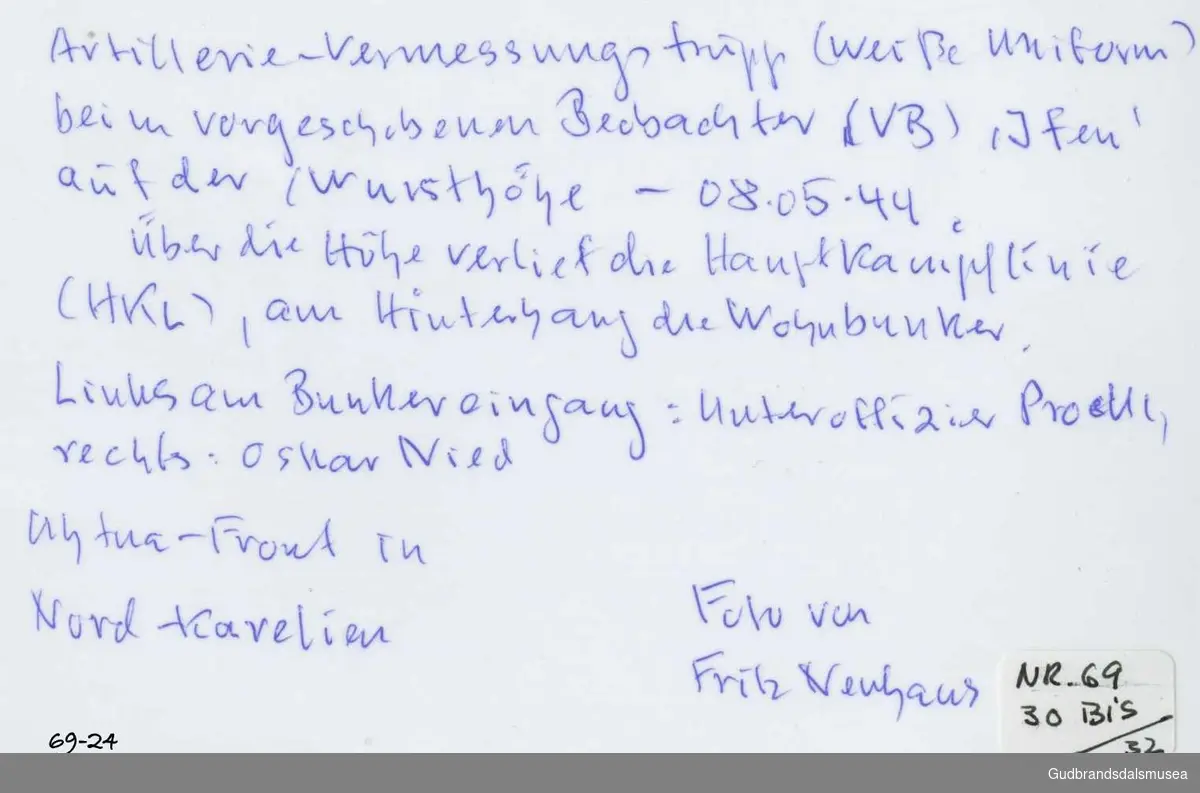 Artillerie-Vermessungstrupp (weiße Uniform)
beim vorgeschobenen Beobachter (VB) 'Ifen'
auf der Wursthöhe – 08.05.44.
Über die Höhe verlief die Hauptkampflinie
(HKL), am Hinterhang die Wohnbunker.
Links am Bunkereingang: Unteroffizier
rechts: Oskar Nied
Uhtua-Front in
Nord Karelien
Foto von
Fritz Neuhaus
NR. 69
30 BIS
32
69-24
Gudbrandsdalsmusea